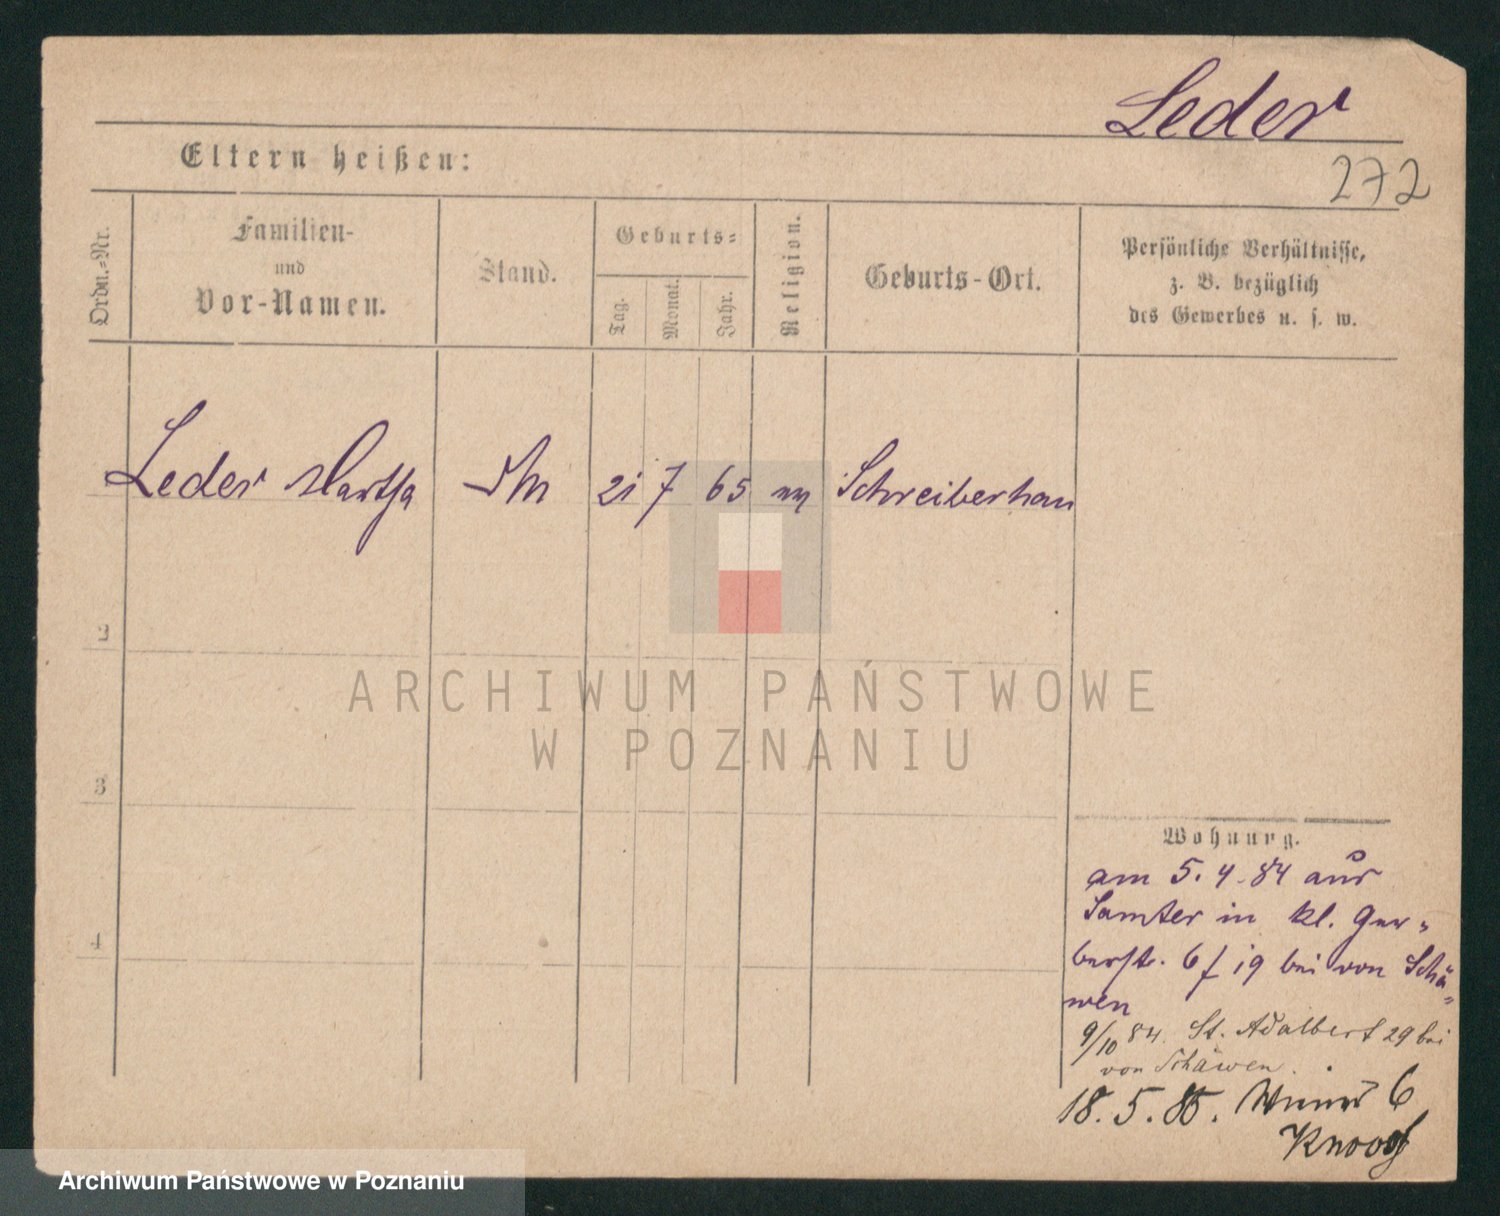 Leder
272
Eltern heißen:
Ordn.-Nr.
Familien-
und
Vor-Namen.
Stand.
Geburts-
Tag.
Monat.
Jahr.
Religion.
Geburts-Ort.
Persönliche Verhältnisse,
z. B. bezüglich
des Gewerbes u. s. w.
Leder Martha 21 7 65 Schreiberhau
2
3
4
ARCHIWUM PAŃSTWOWE
W POZNANIU
Wohnung.
am 5.4.84 aus
Samter in kl. Ger-
berstr. 6 19 bei von Schä-
wen
9/10 84. St. Adalbert 29 bei
von Schäwen.
18.5.85. 6
Archiwum Państwowe w Poznaniu